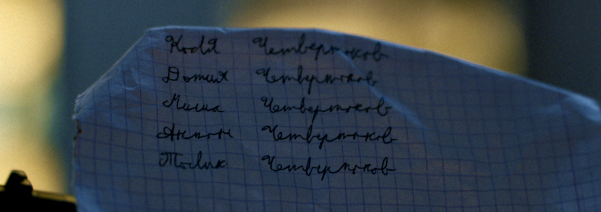 Коля Четвертаков
Четвертаков
Миша Четвертаков
Антон Четвертаков
Толик Четвертаков